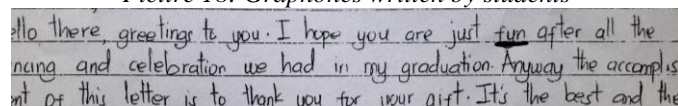 Figure 18: Graphones written by students
ello there, greetings to you. I hope you are just fun after all the
ncing and celebration we had in my graduation. Anyway the accomplis
nt of this letter is to thank you for your gift. It's the best and the